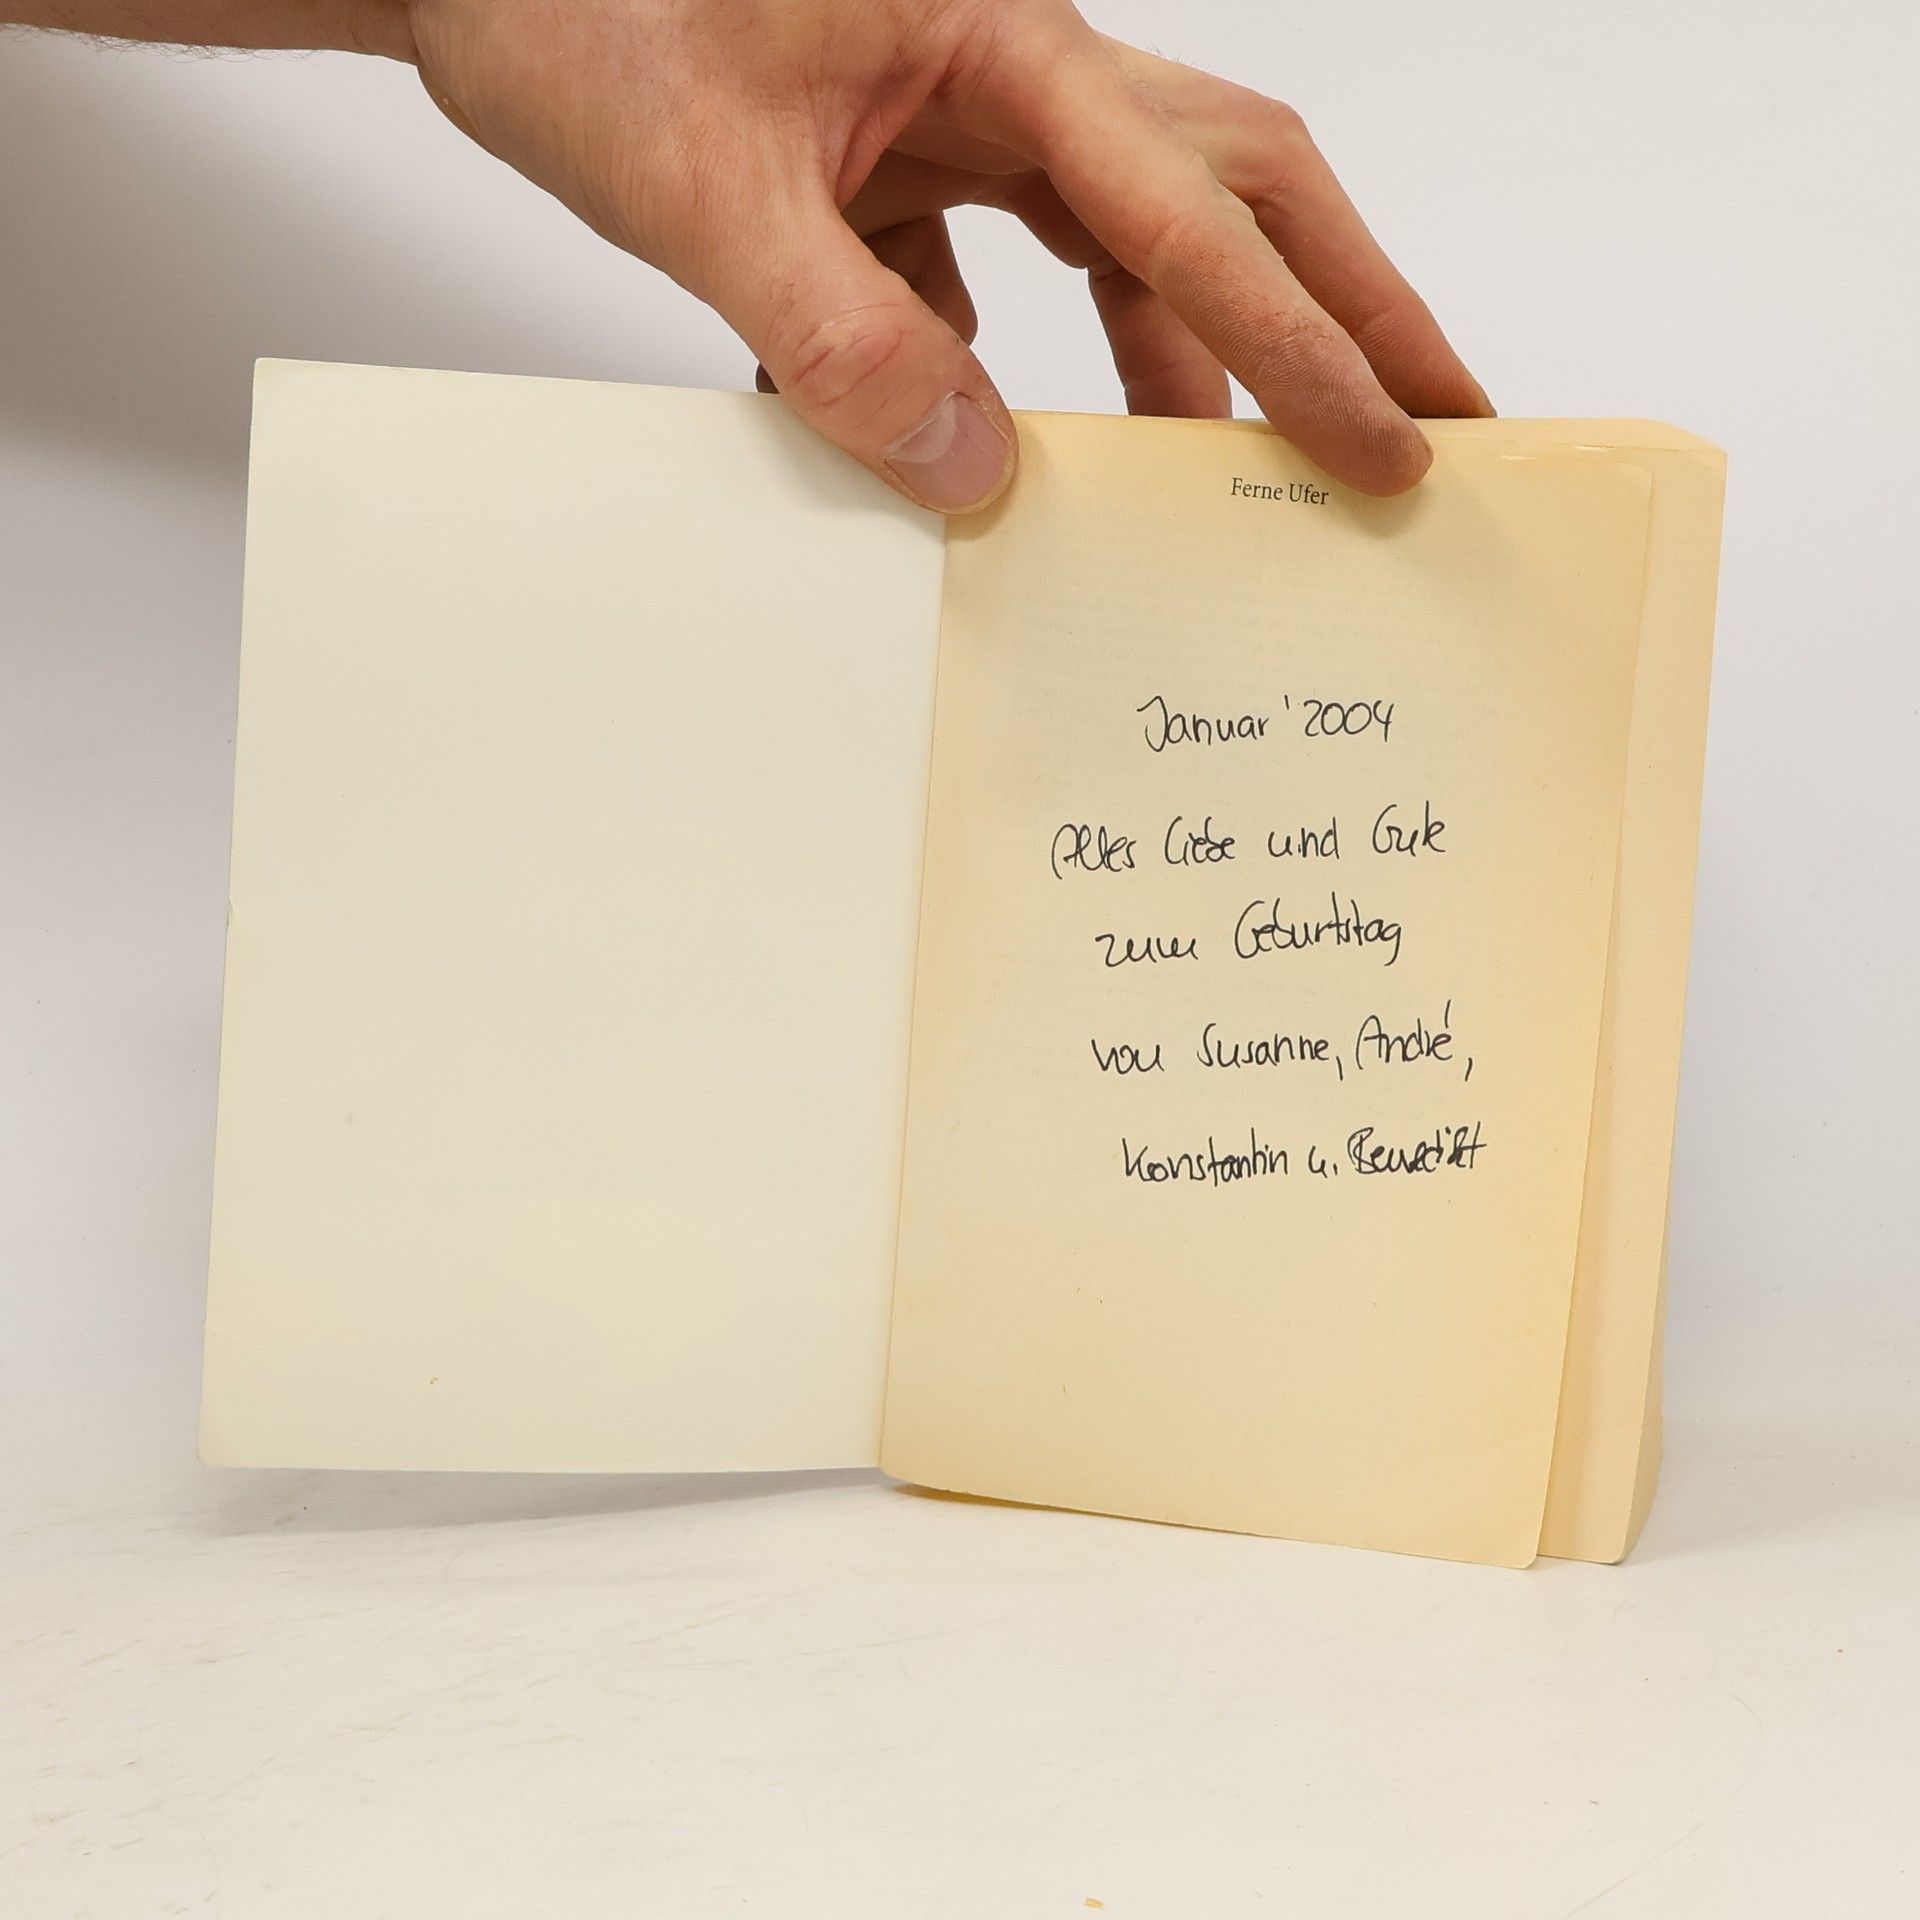 Ferne Ufer
Januar '2004
Alles Liebe und Gute
zum Geburtstag
von Susanne, André,
Konstantin u. Benedikt